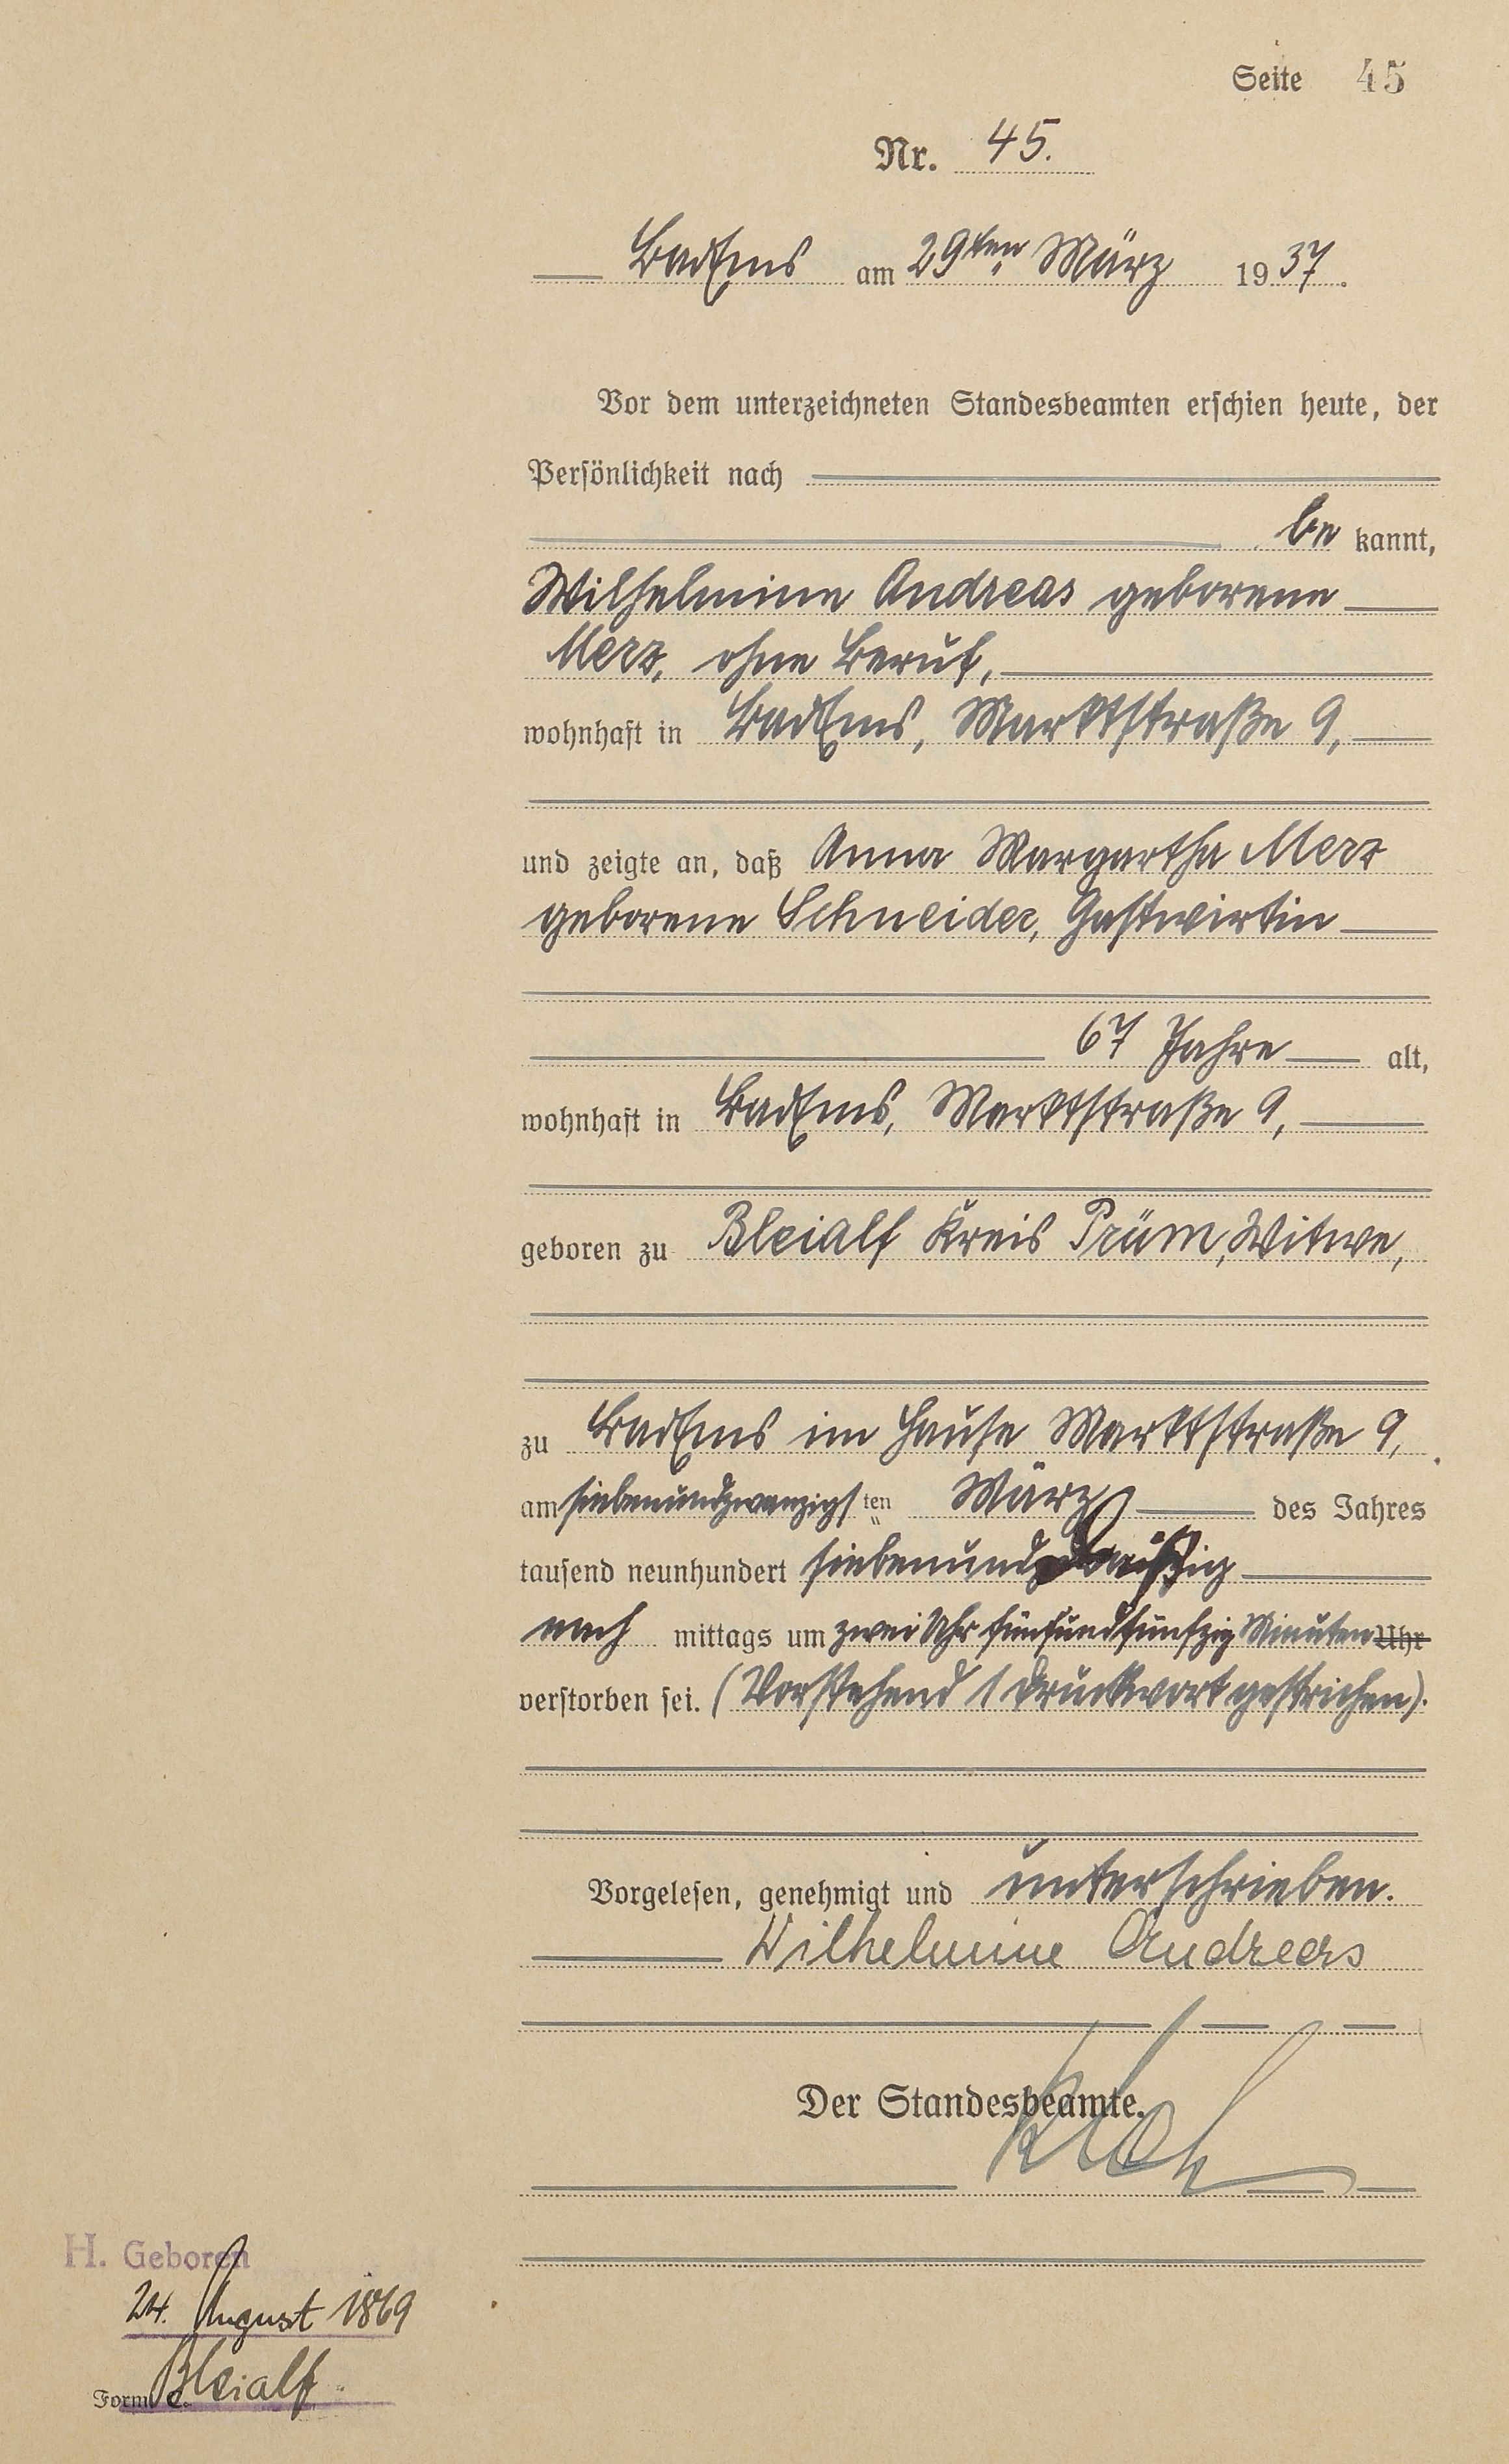 Seite 45
Nr. 45.
Bad Ems am 29ten März 1937.
Vor dem unterzeichneten Standesbeamten erschien heute, der
Persönlichkeit nach
be kannt,
Wilhelmine Andreas geborene
Merz, ohne Beruf,
wohnhaft in Bad Ems, Marktstraße 9,
und zeigte an, daß Anna Margartha Merz
geborene Schneider, Gastwirtin
67 Jahre alt,
wohnhaft in Bad Ems, Marktstraße 9,
geboren zu Bleialf Kreis Prüm, Witwe,
zu Bad Ems im Hause Marktstraße 9,
am siebenundzwanzigsten März des Jahres
tausend neunhundert siebenunddreißig
nach mittags um zwei Uhr fünfundfünfzig Minuten Uhr
verstorben sei. (Vorstehend 1 Druckwort gestrichen).
Vorgelesen, genehmigt und unterschrieben.
Wilhelmine Andreas
Der Standesbeamte.
H. Geboren
24. August 1869
Bleialf
Form C.